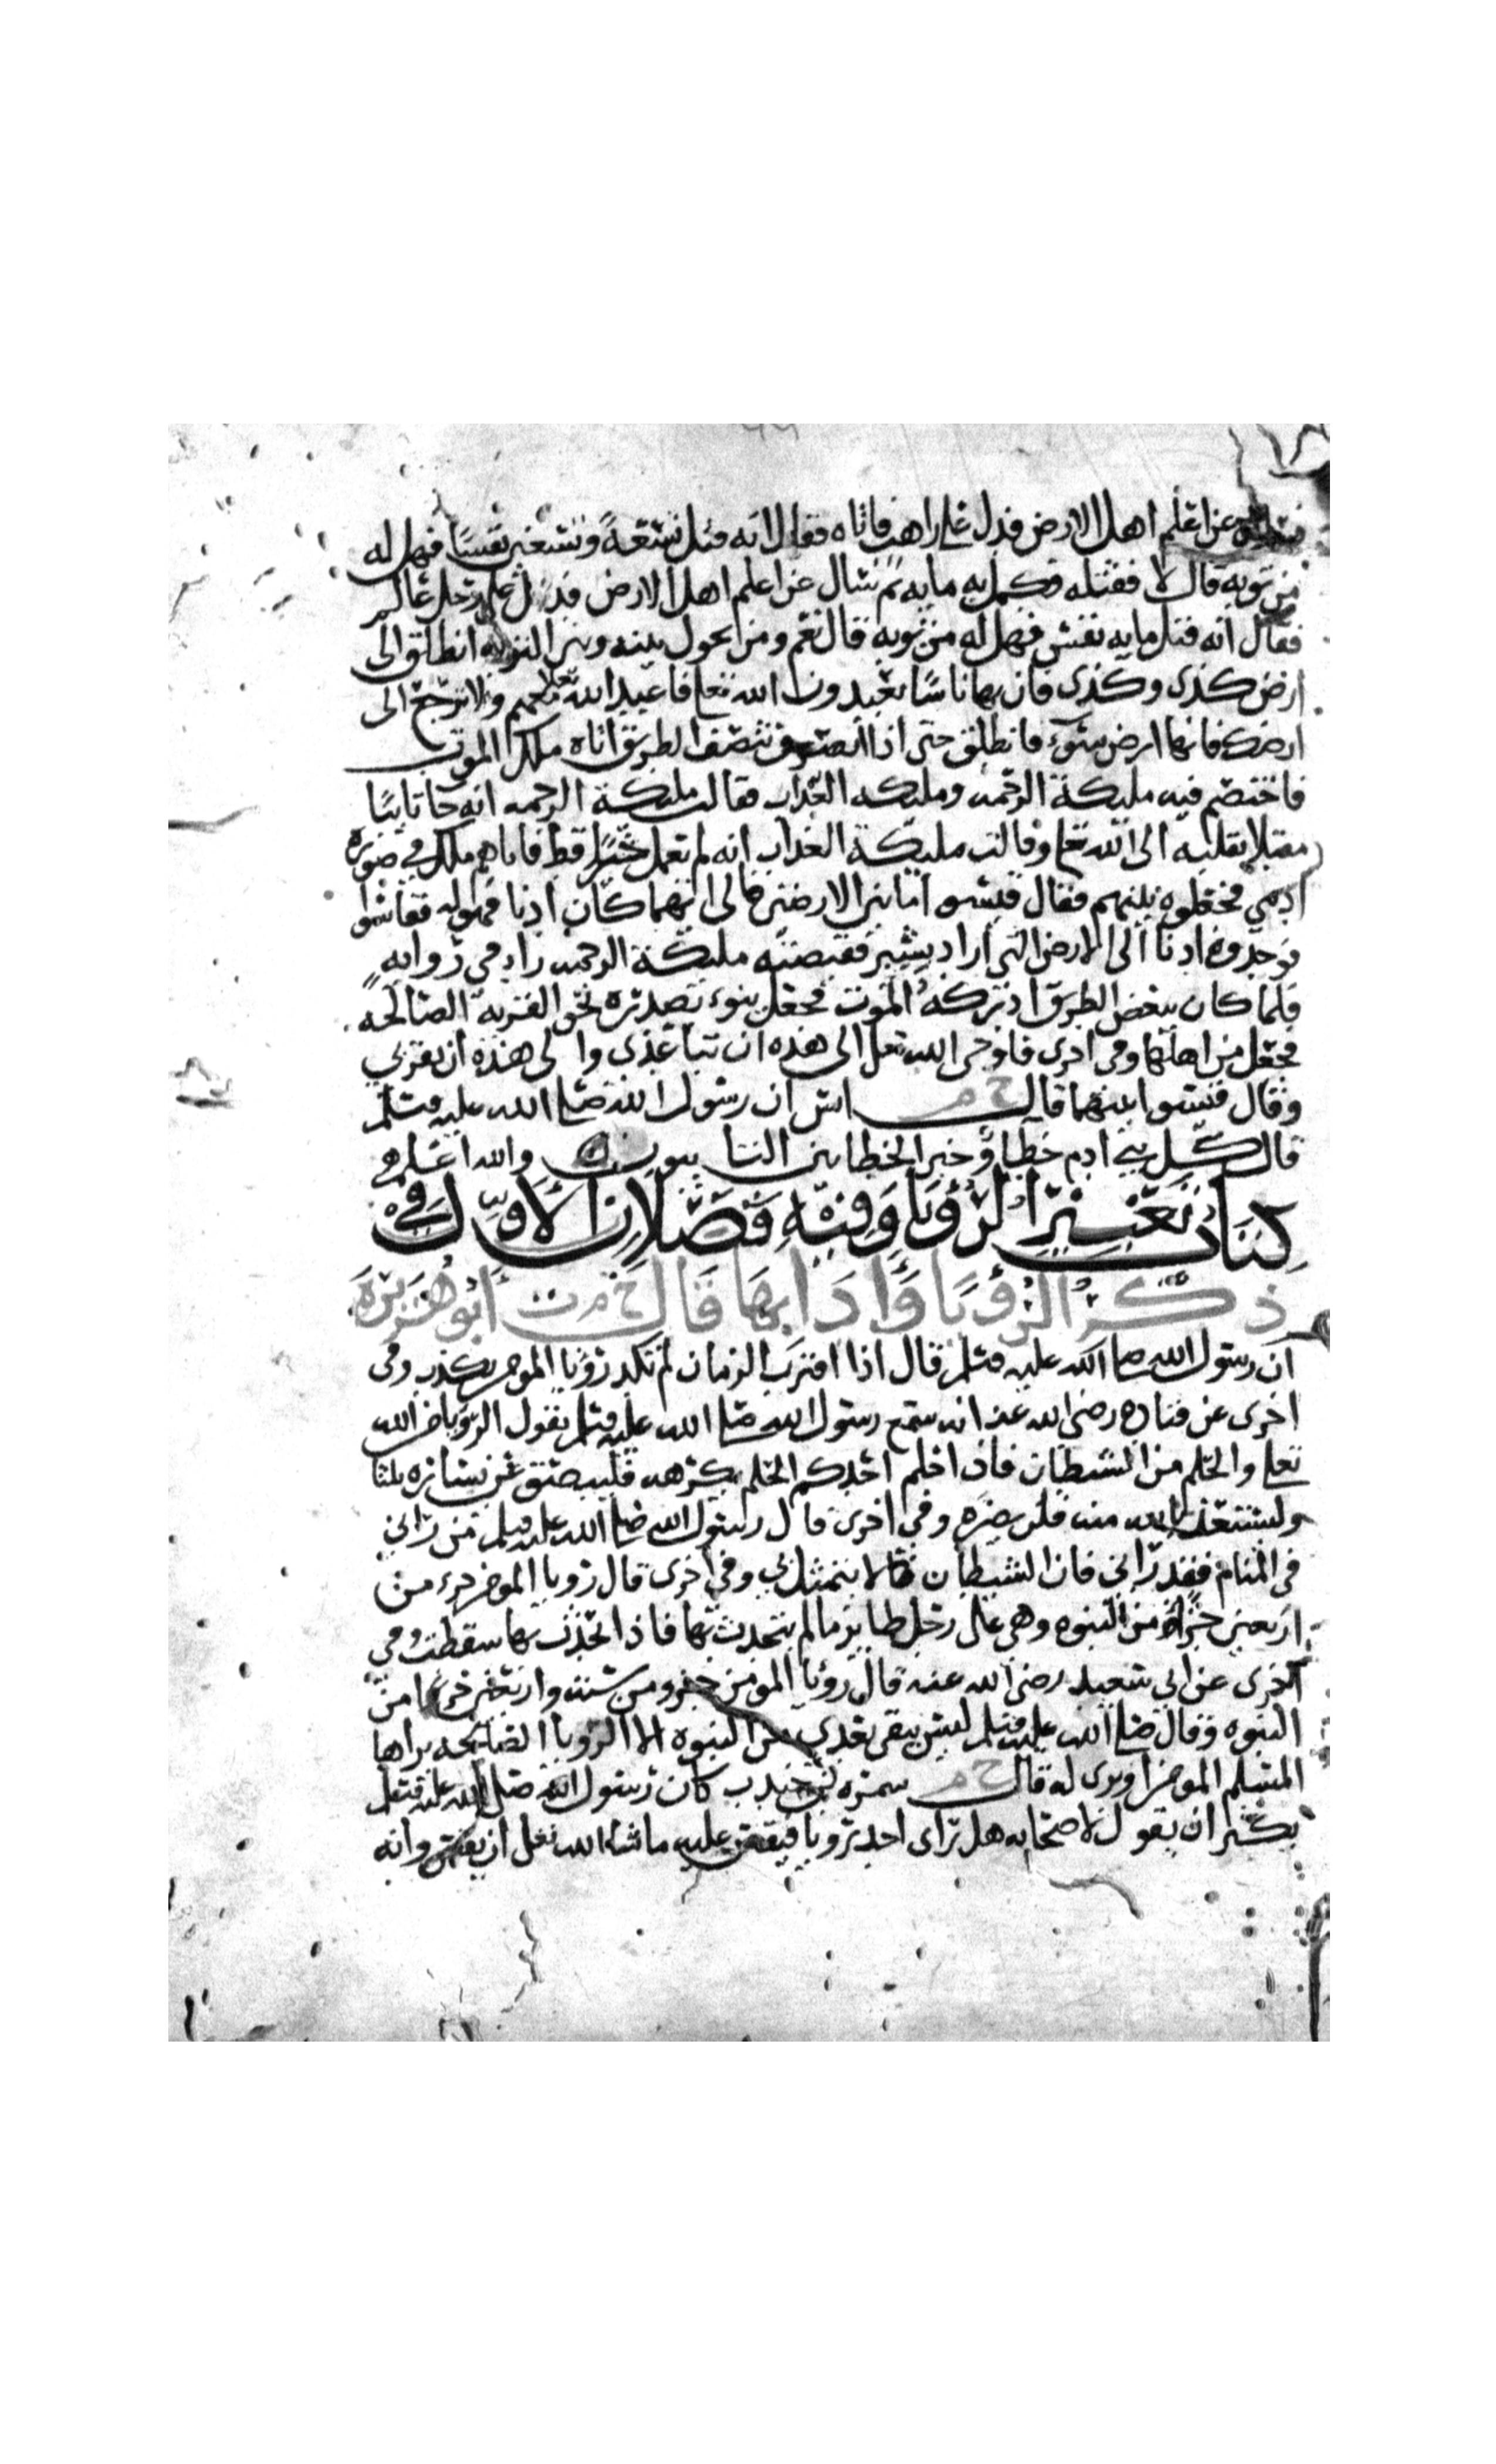 فسأل عن اعلم اهل الارض فدل على راهب فاتاه فقال انه قتل تسعة وتسعين نفسا فهل له
من توبه قال لا فقتله فكمل به مايه ثم سال عن اعلم اهل الارض فدل على رجل عالم
فقال انه قتل مايه نفس فهل له من توبه قال نعم ومن يحول بينه وبين التوبه انطلق الى
ارض كذى وكذى فان بها ناسا يعبدون الله تعا فاعبد الله تعا معهم ولا ترجع الى
ارضك فانها ارض سوء فانطلق حتى اذا نصف الطريق اتاه ملك الموت
فاختصم فيه مليكة الرحمه ومليكه العذاب فقالت مليكة الرحمه انه جا تايبا
مقبلا بقلبه الى الله تعا وقالت مليكة العذاب انه لم يعمل خيرا قط فاتاهم ملك في صوره
ادمي فجعلوه بينهم فقال قيسوا ما بين الارضين فالى ايتهما كان ادنا فهو له فقاسوا
فوجدوه ادنا الى الارض التي اراد بشبر فقبضته مليكة الرحمه زاد في روايه
فلما كان ببعض الطريق ادركه الموت فجعل ينوء بصدره نحو القريه الصالحه
فجعل من اهلها وفي اخرى فاوحى الله تعل الى هذه ان تباعدى والى هذه ان تقربي
وقال قيسوا بينهما قال خ م انس ان رسول الله صلى الله عليه وسلم
قال كل بني ادم خطا وخير الخطاين التايبون والله اعلم
كتاب تعبير الرؤيا وفيه فصلان الاول في
ذكر الرؤيا وادابها قال خ م ت ابو هريرة
ان رسول الله صلى الله عليه وسلم قال اذا اقترب الزمان لم تكد رؤيا المومن تكذب وفي
اخرى عن قتاده رضى الله عنه انه سمع رسول الله صلى الله عليه وسلم يقول الرؤيا من الله
تعلى والحلم من الشيطان فاذا حلم احدكم الحلم يكرهه فليبصق عن يساره ثلثا
وليستعذ بالله منه فلن يضره وفي اخرى قال رسول الله صلى الله عليه وسلم من رانى
في المنام فقد رانى فان الشيطان لا يتمثل بي وفي اخرى قال رؤيا المومن جزء من
اربعين جزءا من النبوه وهي على رجل طاير ما لم يتحدث بها فاذا تحدث بها سقطت وفي
اخرى عن ابى سعيد رضى الله عنه قال رؤيا المومن جزء من سته واربعين جزءا من
النبوه وقال صلى الله عليه وسلم ليس يبقى بعدي من النبوه الا الرؤيا الصالحه يراها
المسلم المومن او يرى له قال خ م سمره بن جندب كان رسول الله صلى الله عليه وسلم
يكثر ان يقول لاصحابه هل راى احد رويا فيقص عليه ما شاء الله تعلى ان يقص وانه